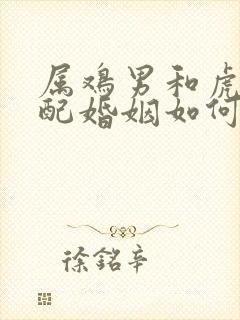 属鸡男和虎
配婚姻如何
徐銘辛